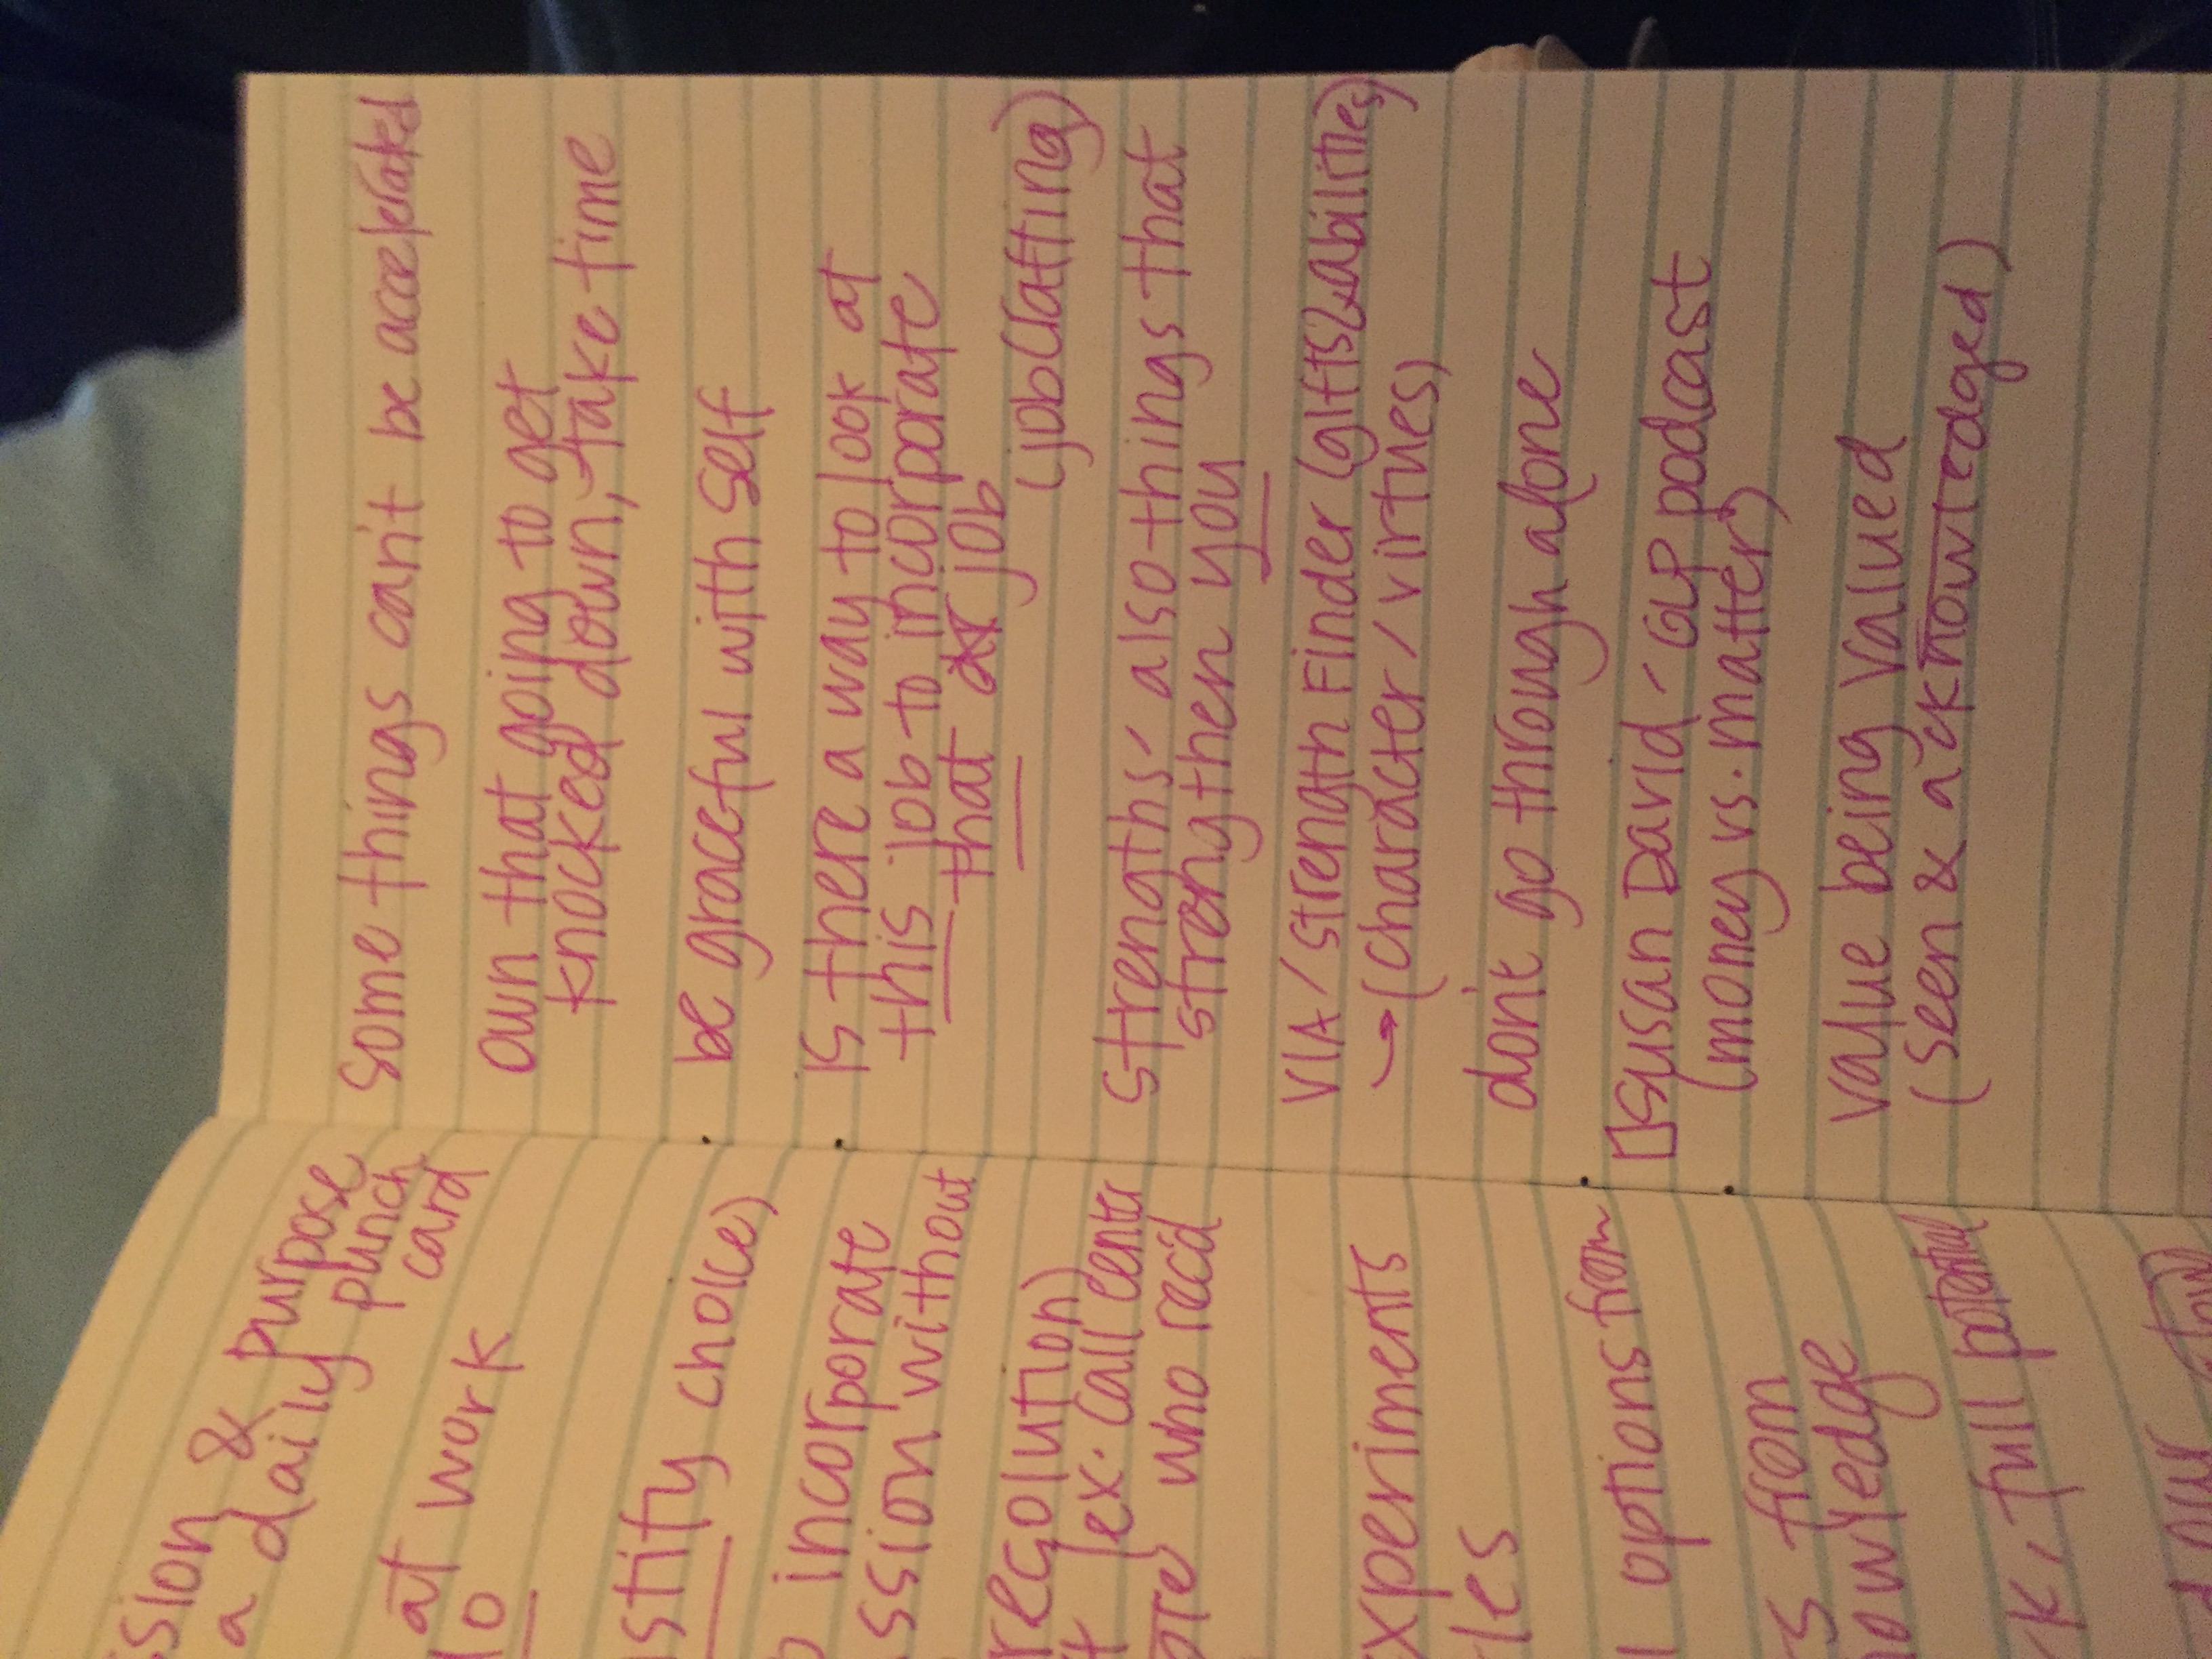 ssion & purpose
a daily punch
card
at work
stify choice)
incorporate
ssion without
resolution)
(ex. call center
who rec'd
xperiments
les
options from
s from
nowledge
rk, full potential
our
some things can't be accelerated
own that going to get
knocked down, take time
be graceful with self
is there a way to look at
this job to incorporate
that job
(job crafting)
strengths - also things that
strengthen you
VIA / Strength Finder (gifts & abilities)
→ (character / virtues)
don't go through alone
Susan David - GLP podcast
(money vs. matter)
value being valued
(seen & acknowledged)